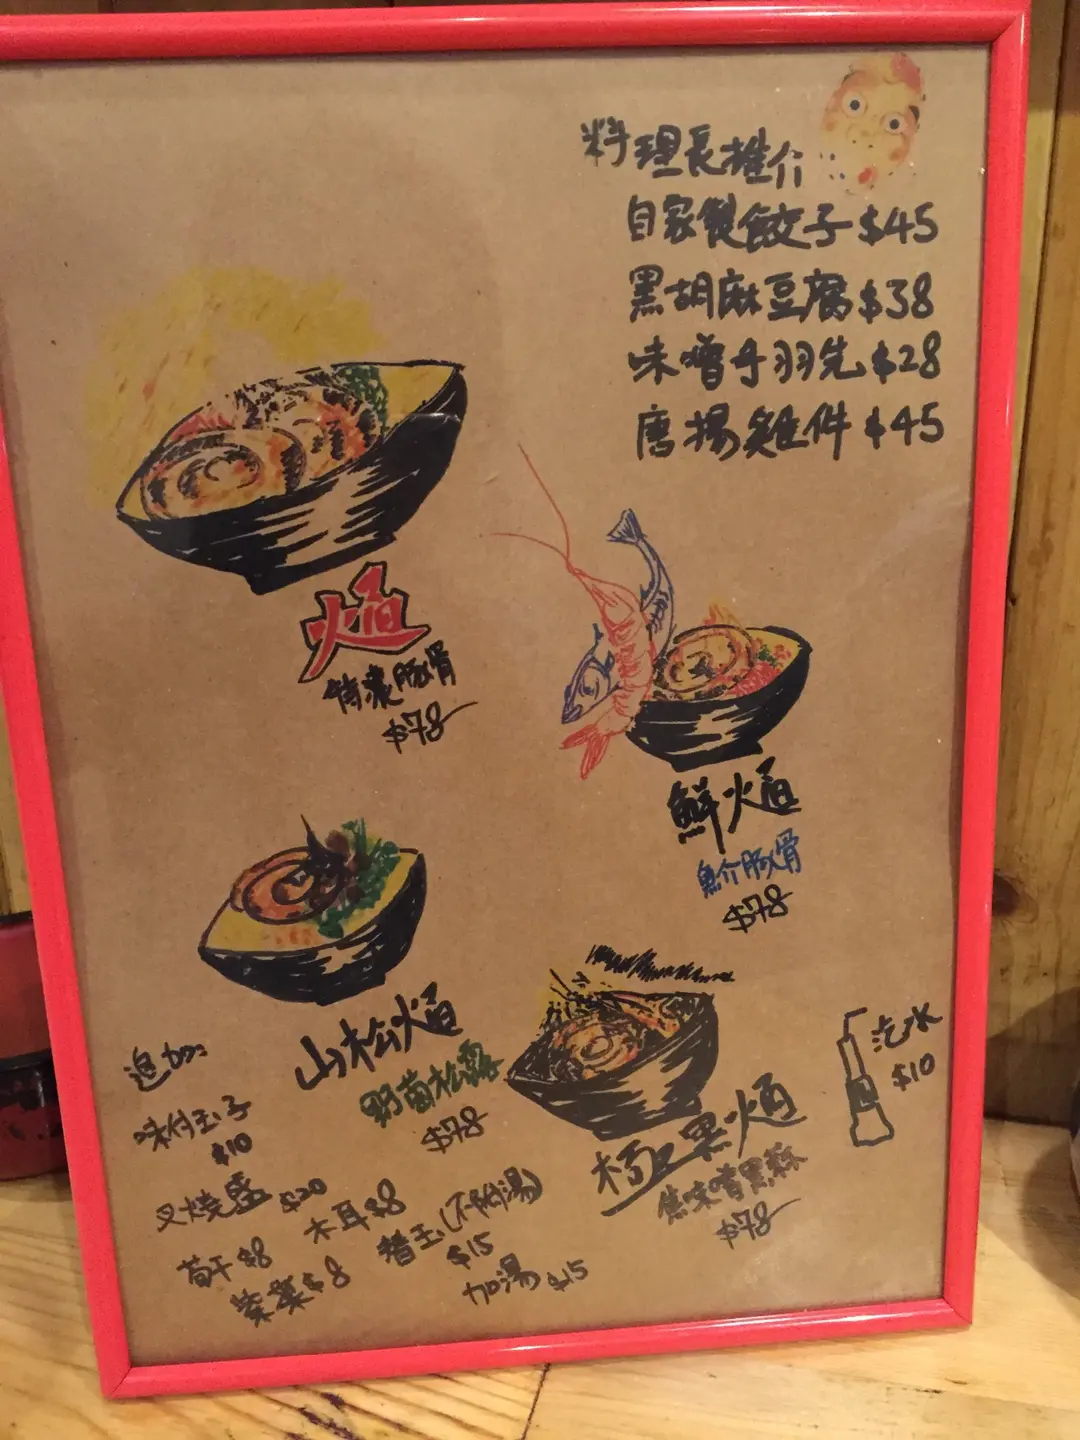 料理長推介
自家製餃子 $45
黑胡麻豆腐 $38
味噌手羽先 $28
唐揚雞件 $45
焔
特濃豚骨
$78
鮮焔
魚介豚骨
$78
山松焔
野菌松露
$78
極黑焔
焦味噌黑蒜
$78
汽水
$10
追加
味付玉子
$10
叉燒盛 $20
木耳 $8
筍干 $8
紫菜 $8
替玉(不附湯)
$15
加湯 $15